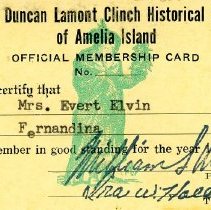 Duncan Lamont Clinch Historical
of Amelia Island
OFFICIAL MEMBERSHIP CARD
No.
certify that
Mrs. Evert Elvin
Fernandina
ember in good standing for the year
William S